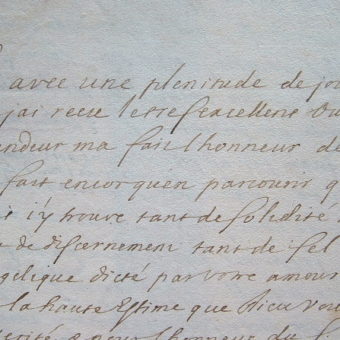 avec une plenitude de joi
j'ai receu le tres excellent Ou
andeur ma fait l honneur de
fait encor qu'en parcourir q
i'y trouve tant de solidité
de discernement tant de sel
gelique dicté par votre amour
la haute Estime que Dieu vou
l honneur du